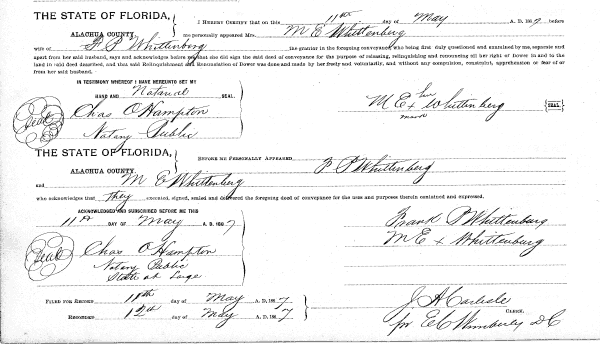 THE STATE OF FLORIDA,
ALACHUA COUNTY.
I HEREBY CERTIFY that on this 11th day of May A. D. 1887, before
me personally appeared Mrs. M E Whittenberg
wife of P P Whittenberg the grantor in the foregoing conveyance, who being first duly questioned and examined by me, separate and
apart from her said husband, says and acknowledges before me, that she did sign the said deed of conveyance for the purpose of releasing, relinquishing and renouncing all her right of dower in and to the
land in said deed described, and that said Relinquishment and Renunciation of Dower was done and made by her freely and voluntarily, and without any compulsion, constraint, apprehension or fear of or
from her said husband.
IN TESTIMONY WHEREOF I HAVE HEREUNTO SET MY
HAND AND Notarial SEAL.
Seal
Chas O Hampton
Notary Public
her
M E x Whittenberg SEAL.
mark
THE STATE OF FLORIDA,
ALACHUA COUNTY.
BEFORE ME PERSONALLY APPEARED P P Whittenberg
and M E Whittenberg
who acknowledges that they executed, signed, sealed and delivered the foregoing deed of conveyance for the uses and purposes therein contained and expressed.
ACKNOWLEDGED AND SUBSCRIBED BEFORE ME THIS
11th DAY OF May A. D. 1887
Seal
Chas O Hampton
Notary Public
State at Large
Frank P Whittenburg
M E x Whittenburg
FILED FOR RECORD 11th day of May A. D. 1887
RECORDED 12th day of May A. D. 1887
J A Carlisle
CLERK.
for E C Wimberly D C